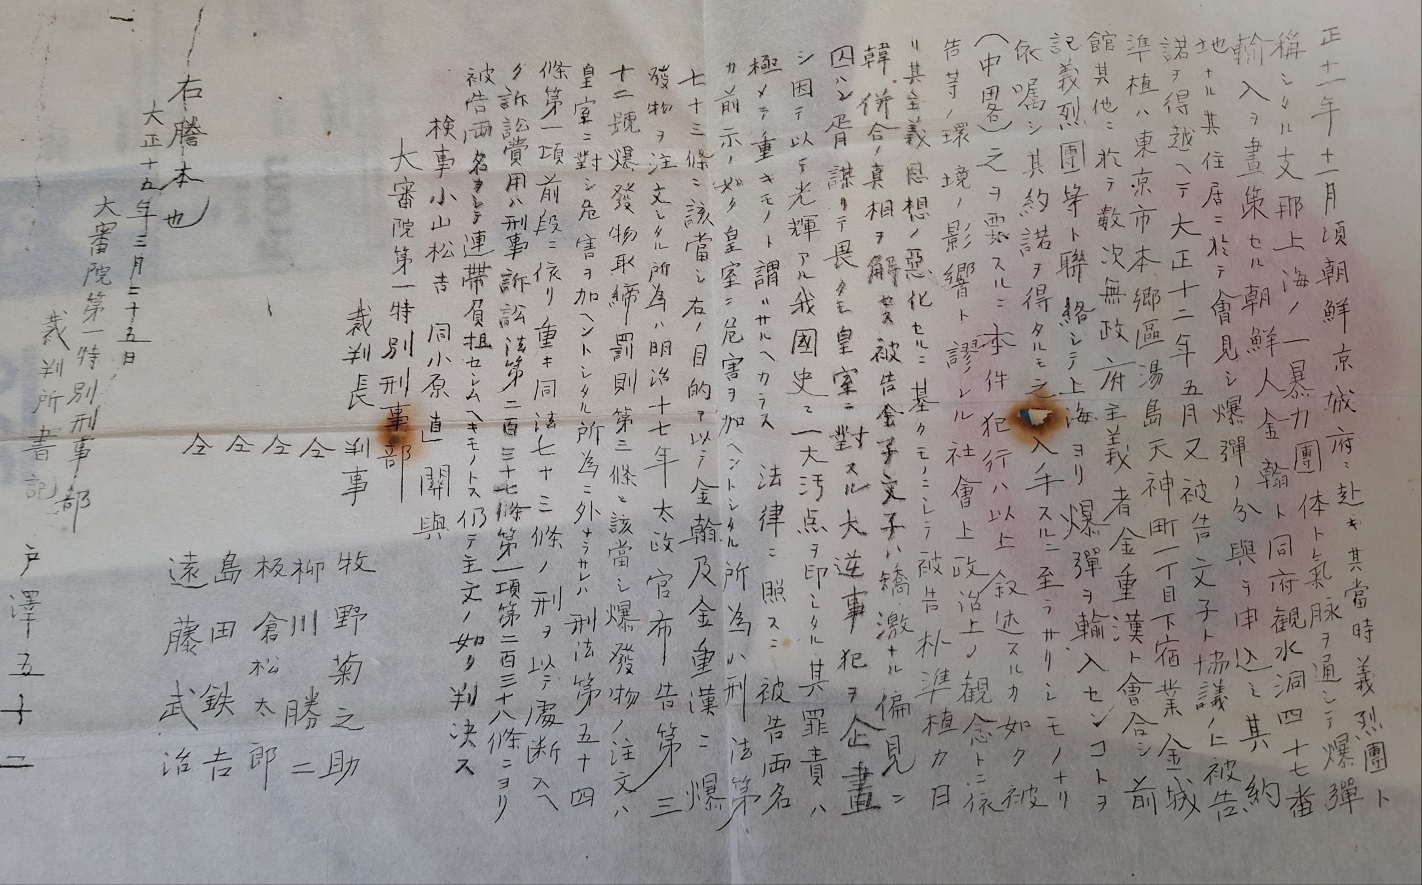 正十一年十一月頃朝鮮京城府ニ赴キ其當時義烈團ト
稱シタル支那上海ノ一暴力團体ト氣脉ヲ通シテ爆彈
輸入ヲ畫策セル朝鮮人金翰ト同府観水洞四十七番
地ナル其住居ニ於テ會見シ爆彈ノ分與ヲ申込ミ其約
諾ヲ得越ヘテ大正十二年五月又被告文子ト協議ノ上被告
準植ハ東京市本郷區湯島天神町一丁目下宿業金城
館其他ニ於テ數次無政府主義者金重漢ト會合シ前
記義烈團等ト聯絡シテ上海ヨリ爆彈ヲ輸入センコトヲ
依嘱シ其約諾ヲ得タルモ之 入手スルニ至ラサリシモノナリ
(中畧)之ヲ要スルニ本件犯行ハ以上叙述スルカ如ク被
告等ノ環境ノ影響ト謬レル社會上政治上ノ観念トニ依
リ其主義思想ノ惡化セルニ基クモノニシテ被告朴準植カ日
韓併合ノ真相ヲ解セス被告金子文子ハ矯激ナル偏見ニ
囚ハレ胥謀リテ畏クモ皇室ニ對スル大逆事犯ヲ企畫
シ因テ以テ光輝アル我國史ニ一大汚点ヲ印シタル其罪責ハ
極メテ重キモノト謂ハサルヘカラス 法律ニ照スニ被告両名
カ前示ノ如ク皇室ニ危害ヲ加ヘントシタル所為ハ刑法第
七十三條ニ該當シ右ノ目的ヲ以テ金翰及金重漢ニ爆
發物ヲ注文シタル所為ハ明治十七年太政官布告第三
十二號爆發物取締罰則第三條ニ該當シ爆發物ノ注文ハ
皇室ニ對シ危害ヲ加ヘントシタル所為ニ外ナラサレハ刑法第五十四
條第一項前段ニ依リ重キ同法七十三條ノ刑ヲ以テ處断スヘ
ク訴訟費用ハ刑事訴訟法第二百三十七條第一項第二百三十八條ニヨリ
被告両名ヲシテ連帯負担セシムヘキモノトス仍テ主文ノ如ク判決ス
検事小山松吉 同小原直」關與
大審院第一特別刑事部
裁判長 判事 牧野菊之助
仝 柳川勝二
仝 板倉松太郎
仝 島田鉄吉
仝 遠藤武治
右謄本也
大正十五年三月二十五日
大審院第一特別刑事部
裁判所書記 戸澤五十二